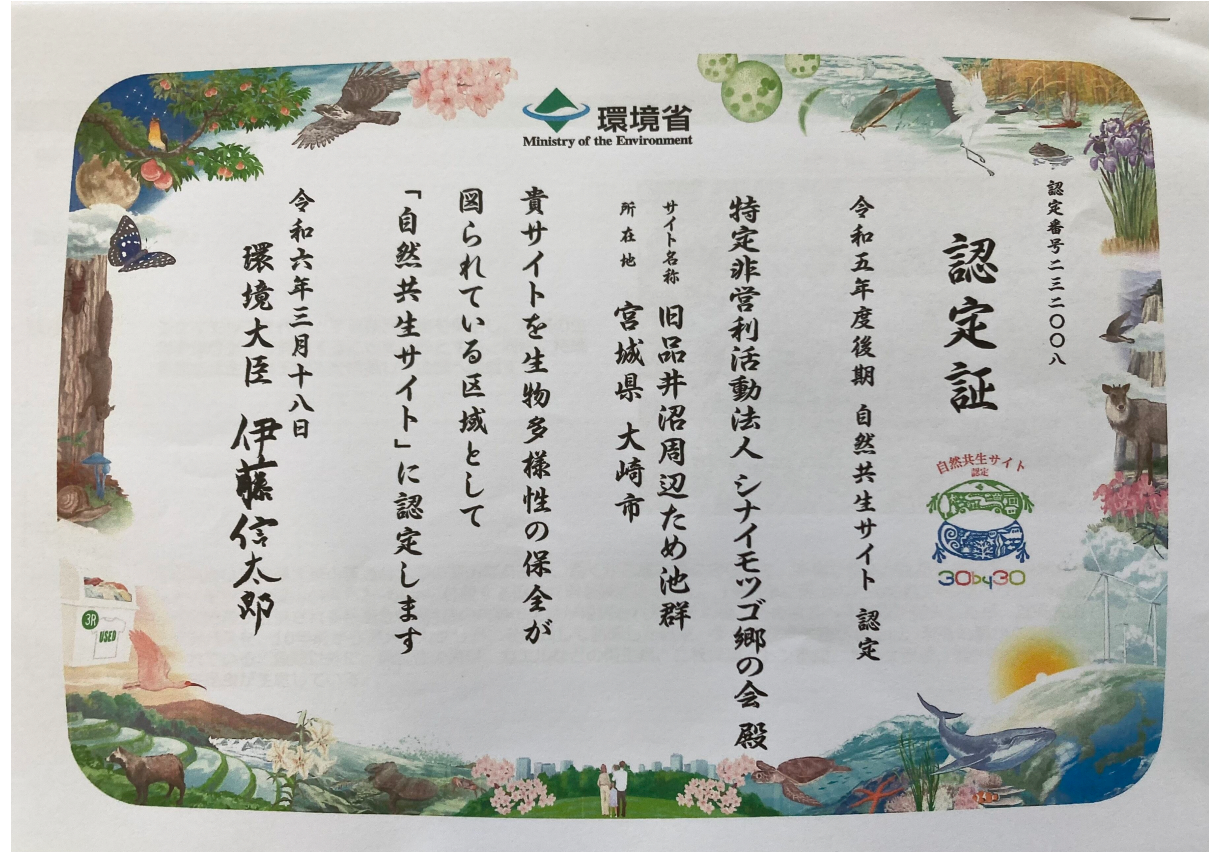 環境省
Ministry of the Environment
認定番号二三二〇〇八
認定証
自然共生サイト
認定
30by30
令和五年度後期 自然共生サイト 認定
特定非営利活動法人 シナイモツゴ郷の会 殿
サイト名称 旧品井沼周辺ため池群
所在地 宮城県 大崎市
貴サイトを生物多様性の保全が
図られている区域として
「自然共生サイト」に認定します
令和六年三月十八日
環境大臣 伊藤信太郎
3R
USED